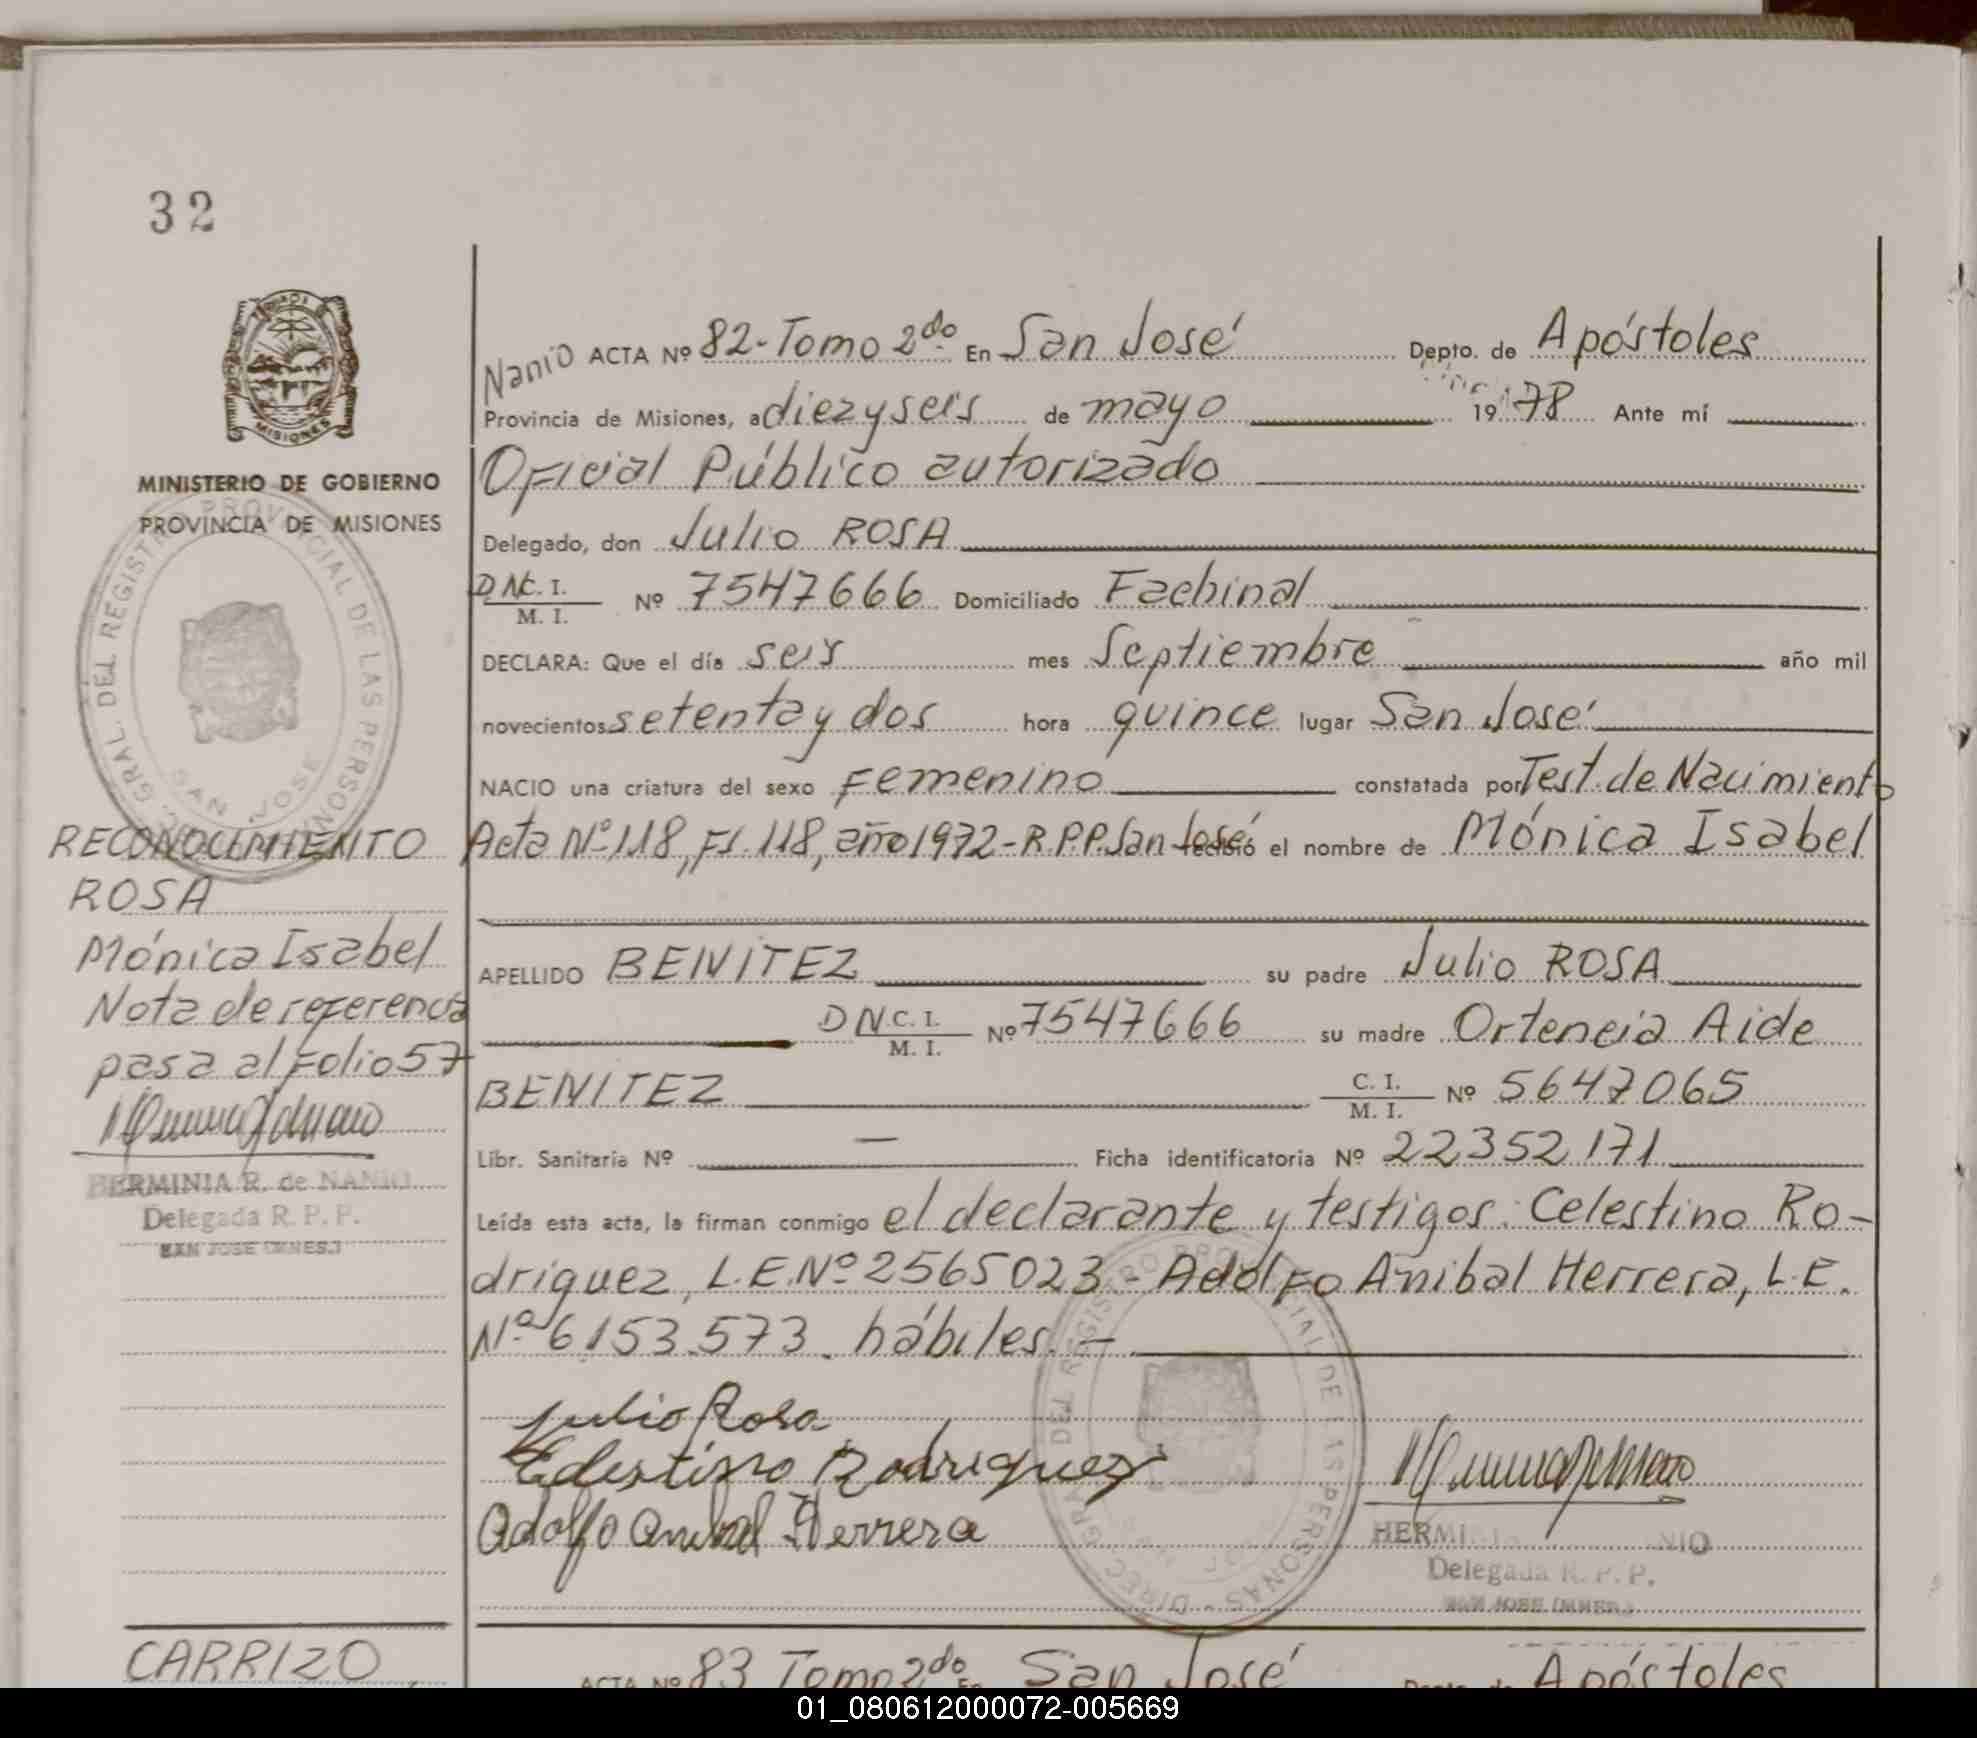 32
MISIONES
MINISTERIO DE GOBIERNO
PROVINCIA DE MISIONES
DIREC. GRAL. DEL REGISTRO PROVINCIAL DE LAS PERSONAS
SAN JOSE
RECONOCIMIENTO
ROSA
Mónica Isabel
Nota de referencia
pasa al folio 57
HERMINIA R. de NANIO
Delegada R. P. P.
SAN JOSE (MNES.)
CARRIZO
Nanio ACTA Nº 82-Tomo 2do. En San José Depto. de Apóstoles
Provincia de Misiones, a diezyseis de mayo 1978 Ante mí
Oficial Público autorizado
Delegado, don Julio ROSA
DNC. I. / M. I. Nº 7547666 Domiciliado Fachinal
DECLARA: Que el día seis mes Septiembre año mil
novecientos setenta y dos hora quince lugar San José
NACIO una criatura del sexo femenino constatada por Test. de Nacimiento
Acta Nº 118, Fº. 118, año 1972-R.P.P. San José recibió el nombre de Mónica Isabel
APELLIDO BENITEZ su padre Julio ROSA
DN C. I. / M. I. Nº 7547666 su madre Ortencia Aide
BENITEZ C. I. / M. I. Nº 5647065
Libr. Sanitaria Nº — Ficha identificatoria Nº 22352171
Leída esta acta, la firman conmigo el declarante y testigos: Celestino Ro-
driguez, L.E.Nº 2565023 - Adolfo Anibal Herrera, L.E.
Nº 6.153.573. hábiles. —
Julio Rosa
Celestino Rodriguez
Adolfo Anibal Herrera
DIREC. GRAL. DEL REGISTRO PROVINCIAL DE LAS PERSONAS -
HERMINIA NIO
Delegada R. P. P.
SAN JOSE (MNES.)
ACTA Nº 83 Tomo 2do. En San José Depto. de Apóstoles
01_080612000072-005669